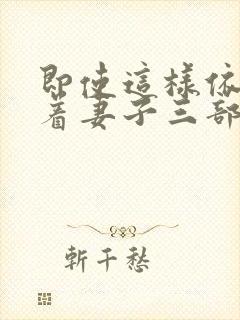 即使這樣依
着妻子三部
斬千愁